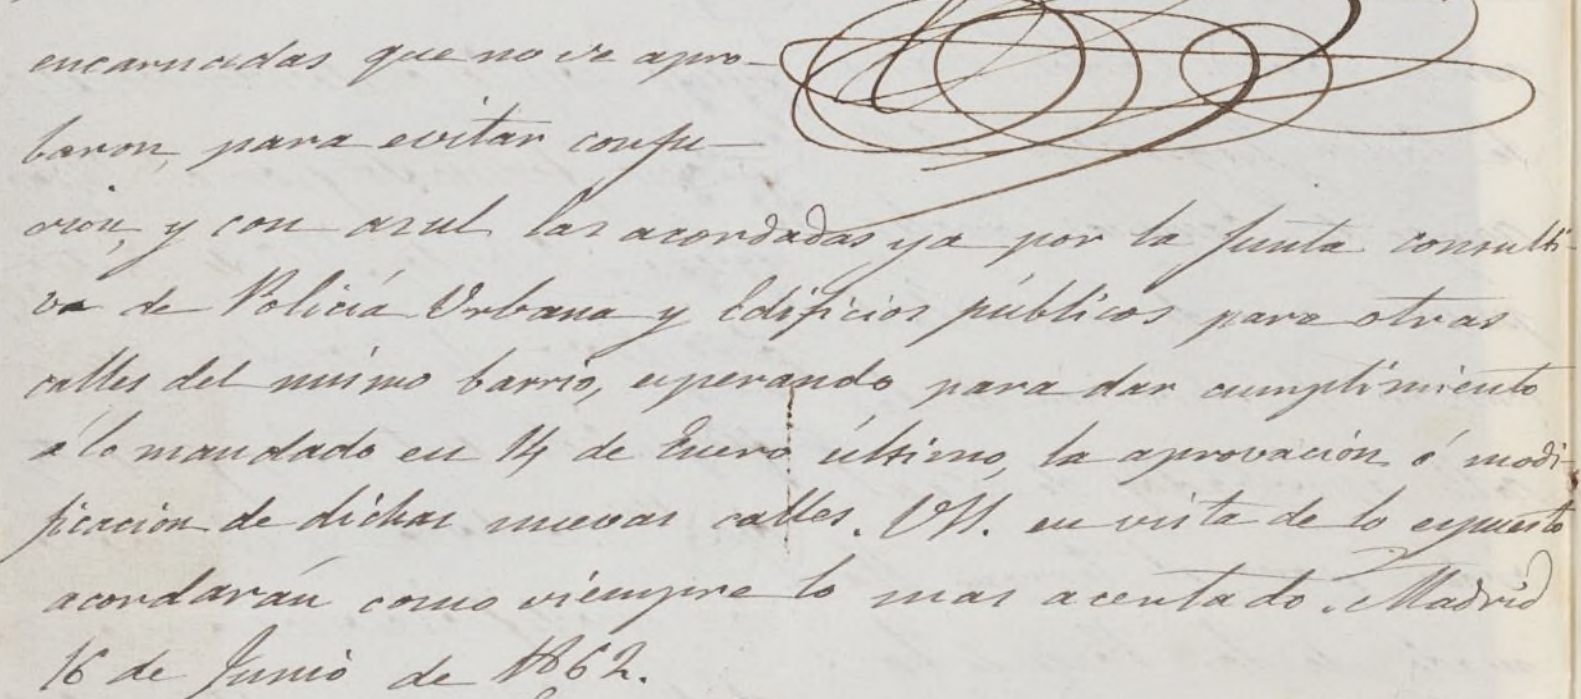 encarnadas que no se apro-
baron, para evitar confu-
sion, y con azul las acordadas ya por la Junta consulti-
va de Policía Urbana y Edificios públicos para otras
calles del mismo barrio, esperando para dar cumplimiento
á lo mandado en 14 de Enero último, la aprovación ó modi-
ficación de dichas nuevas calles. VSS. en vista de lo espuesto
acordarán como siempre lo mas acertado. Madrid
16 de Junio de 1862.